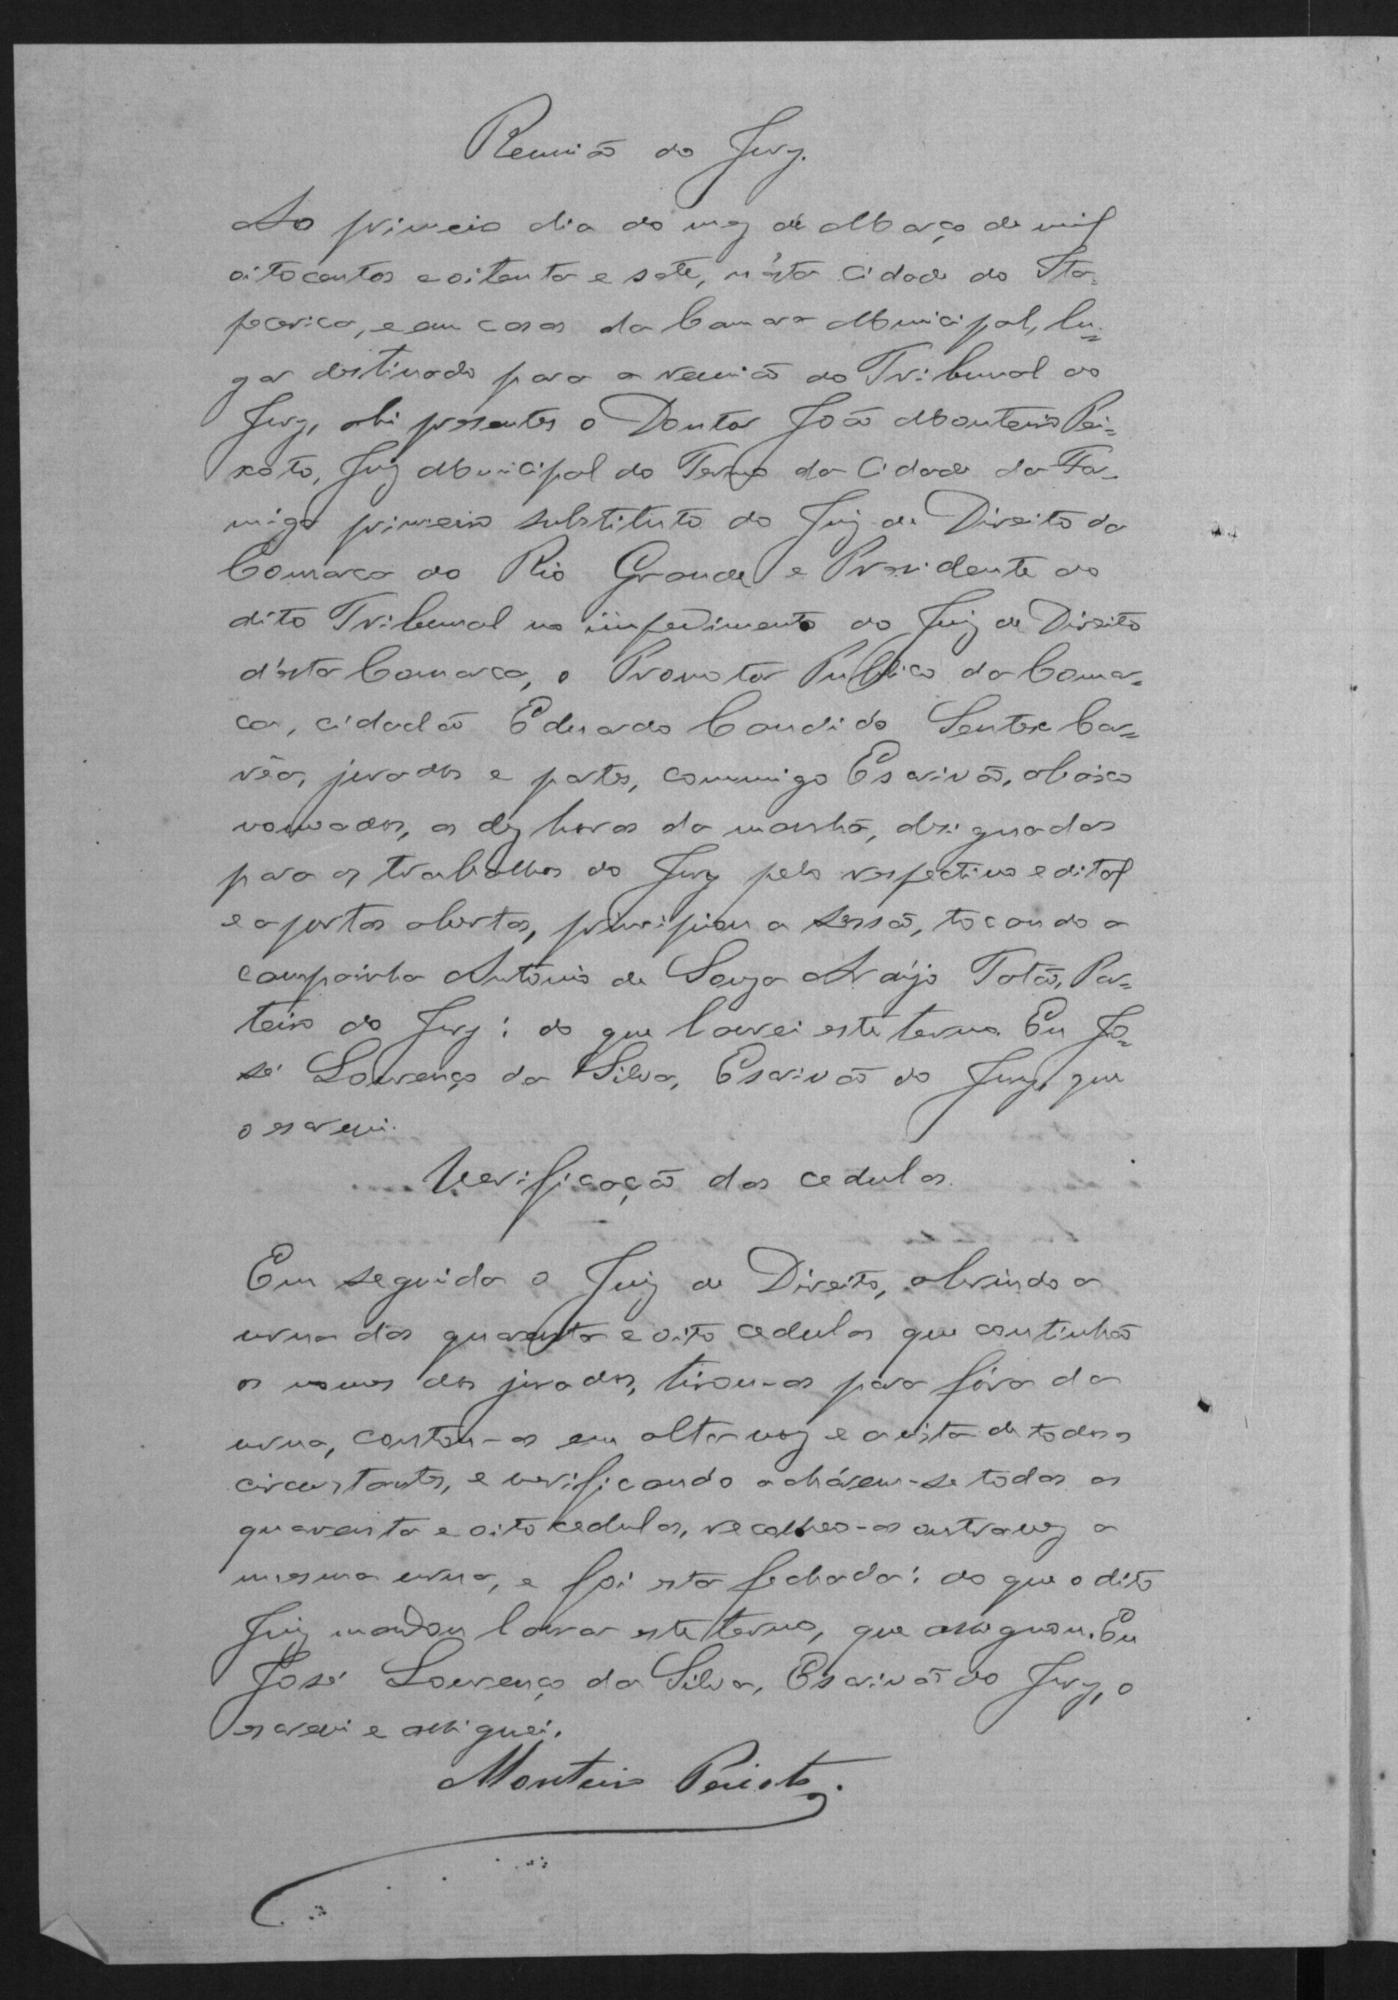 Reunião do Jury.
Ao primeiro dia do mez de Março de mil
oitocentos e oitenta e sete, n'ésta Cidade do Ita-
pecerica, e em casas da Camara Municipal, lu-
gar destinado para a reunião do Tribunal do
Jury, ahi presentes o Doutor João Monteiro Pei-
xoto, Juiz Municipal do Termo da Cidade da For-
miga primeiro substituto do Juiz de Direito da
Comarca do Rio Grande e Presidente do
dito Tribunal no impedimento do Juiz de Direito
d'ésta Comarca, o Promotor Publico da Comar-
ca, cidadão Eduardo Candido Car-
jurados e partes, commigo Escrivão, abaixo
nomeados, as dez horas da manhã, designadas
para os trabalhos do Jury pelo respectivo edital
e a portas abertas, principiou a sessão, tocando a
campainha Antonio de Souza Araújo Totão, Por-
teiro do Jury: do que lavrei este termo. Eu Jo-
sé Lourenço da Silva, Escrivão do Jury, que
o escrevi.
Verificação das cedulas
Em seguida o Juiz de Direito, abrindo a
urna das quarenta e oito cedulas que continhão
os nomes dos jurados, tirou-as para fóra da
urna, contou-as em alta voz e a vista de todos os
circunstantes, e verificando achárem-se todas as
quarenta e oito cedulas, recolheo-as outra vez a
mesma urna, e foi esta fechada: do que o dito
Juiz mandou lavrar este termo, que assignou. Eu
José Lourenço da Silva, Escrivão do Jury, o
escrevi e assignei.
Monteiro Peixoto.